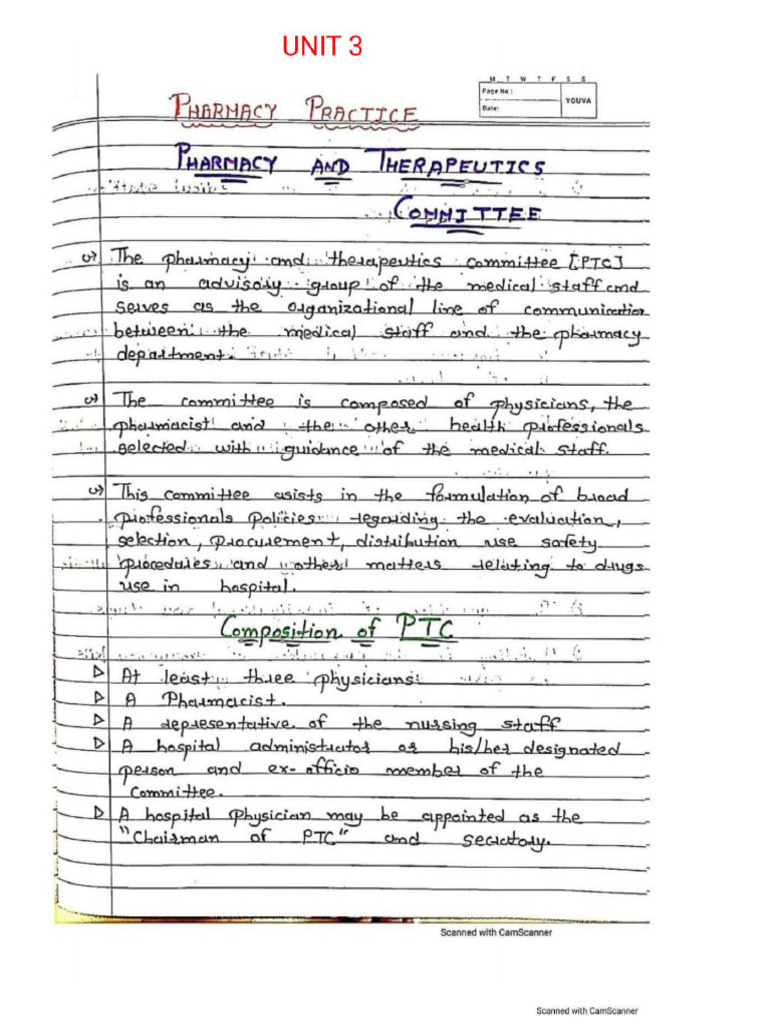 UNIT 3
M T W T F S S
Page No :
YOUVA
Date:
PHARMACY PRACTICE
PHARMACY AND THERAPEUTICS
COMMITTEE
The pharmacy and therapeutics committee [PTC]
is an advisory group of the medical staff and
serves as the organizational line of communication
between the medical staff and the pharmacy
department.
The committee is composed of physicians, the
pharmacist and the other health professionals
selected with guidance of the medical staff.
This committee asists in the formulation of broad
professionals Policies regarding the evaluation,
selection, procurement, distribution use safety
procedures and other matters relating to drugs
use in hospital.
Composition of PTC
▷ At least three physicians
▷ A Pharmacist.
▷ A representative of the nursing staff
▷ A hospital administrator or his/her designated
person and ex-officio member of the
Committee.
▷ A hospital Physician may be appointed as the
"Chairman of PTC" and secratory.
Scanned with CamScanner
Scanned with CamScanner